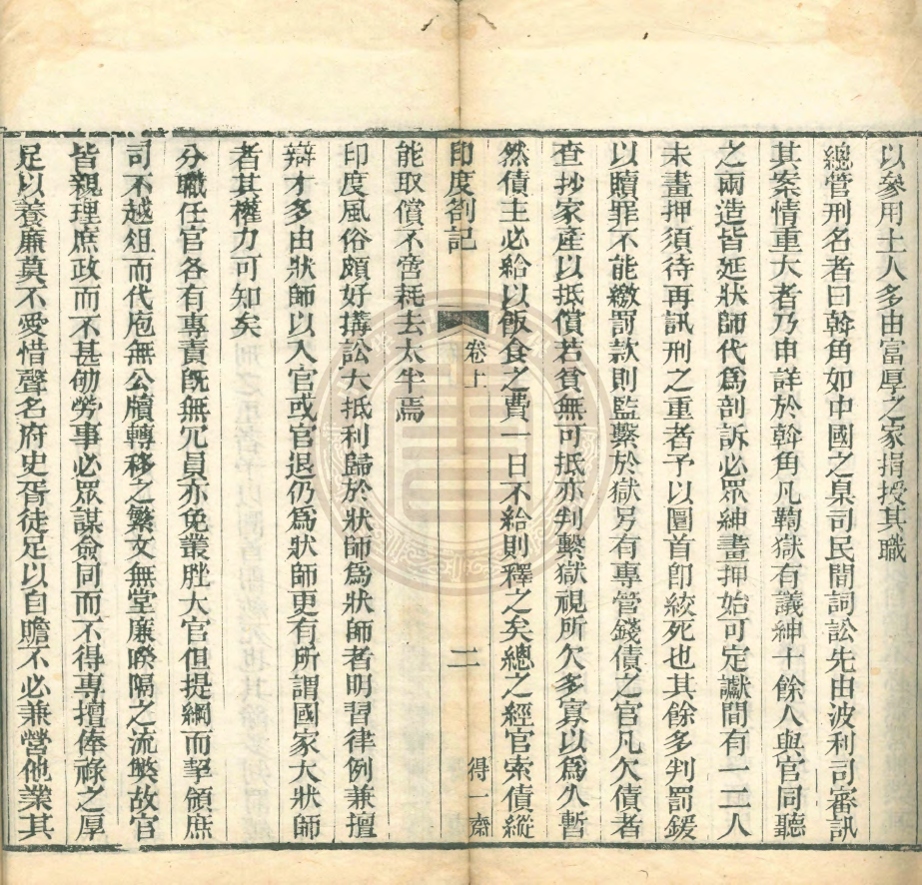 以參用土人多由富厚之家捐授其職
總管刑名者曰斡角如中國之臬司民間詞訟先由波利司審訊
其案情重大者乃申詳於斡角凡鞫獄有議紳十餘人與官同聽
之兩造皆延狀師代爲剖訴必眾紳畫押始可定讞間有一二人
未畫押須待再訊刑之重者予以圜首卽絞死也其餘多判罰鍰
以贖罪不能繳罰款則監繫於獄另有專管錢債之官凡欠債者
查抄家產以抵償若貧無可抵亦判繫獄視所欠多寡以爲久暫
然債主必給以飯食之費一日不給則釋之矣總之經官索債縱
印度劄記
卷上
二
得一齋
能取償不啻耗去太半焉
印度風俗頗好搆訟大抵利歸於狀師爲狀師者明習律例兼擅
辯才多由狀師以入官或官退仍爲狀師更有所謂國家大狀師
者其權力可知矣
分職任官各有專責既無冗員亦免叢脞大官但提綱而挈領庶
司不越俎而代庖無公牘轉移之繁文無堂廉暌隔之流獘故官
皆親理庶政而不甚劬勞事必眾謀僉同而不得專擅俸祿之厚
足以養廉莫不愛惜聲名府史胥徒足以自贍不必兼營他業其